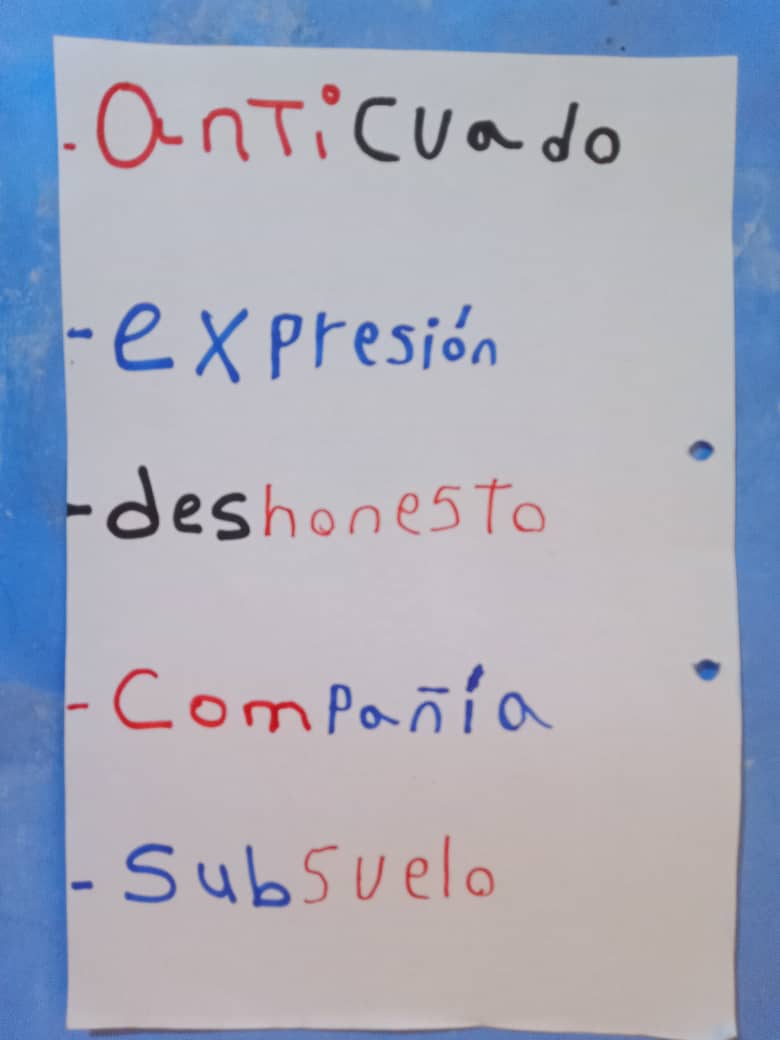 - anticuado
- expresión
- deshonesto
- Compañía
- Subsuelo